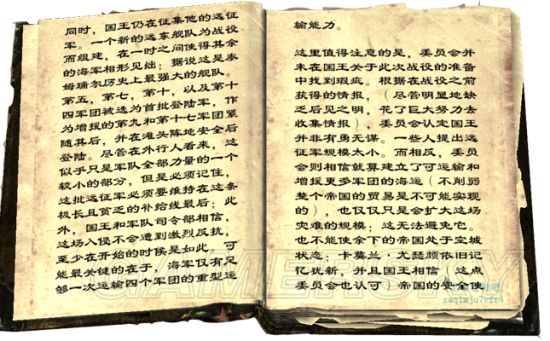 同时，国王仍在征集他的远征
军。一个新的远东舰队为战役
而组建，在一时之间使得其余
的海军相形见绌：据说这是泰
姆瑞尔历史上最强大的舰队。
第五，第七，第十，以及第十
四军团被选为首批登陆军，作
为增援的第九和第十七军团紧
随其后，并在滩头阵地安全后
登陆。尽管在外行人看来，这
似乎只是军队全部力量的一个
较小的部分，但是必须记住，
这批远征军必须要维持在这条
极长且贫乏的补给线最后；此
外，国王和军队司令部相信，
这场入侵不会遭到激烈反抗，
至少在开始的时候是如此。可
能最关键的在于，海军仅有足
够一次运输四个军团的重型运
输能力。
这里值得注意的是，委员会并
未在国王关于此次战役的准备
中找到瑕疵。根据在战役之前
获得的情报，（尽管明显地缺
乏后见之明，花了巨大努力去
收集情报），委员会认定国王
并非有勇无谋。一些人提出远
征军规模太小。而相反，委员
会则相信就算建立了可运输和
增援更多军团的海运（不削弱
整个帝国的贸易是不可能实现
的），也仅仅只是会扩大这场
灾难的规模；这无法避免它。
也不能使余下的帝国处于空城
状态：卡莫兰·尤瑟顺依旧记
忆犹新，并且国王相信（这点
委员会也认可）帝国的安全使
GAMERSKY
zaqimju7vfr4